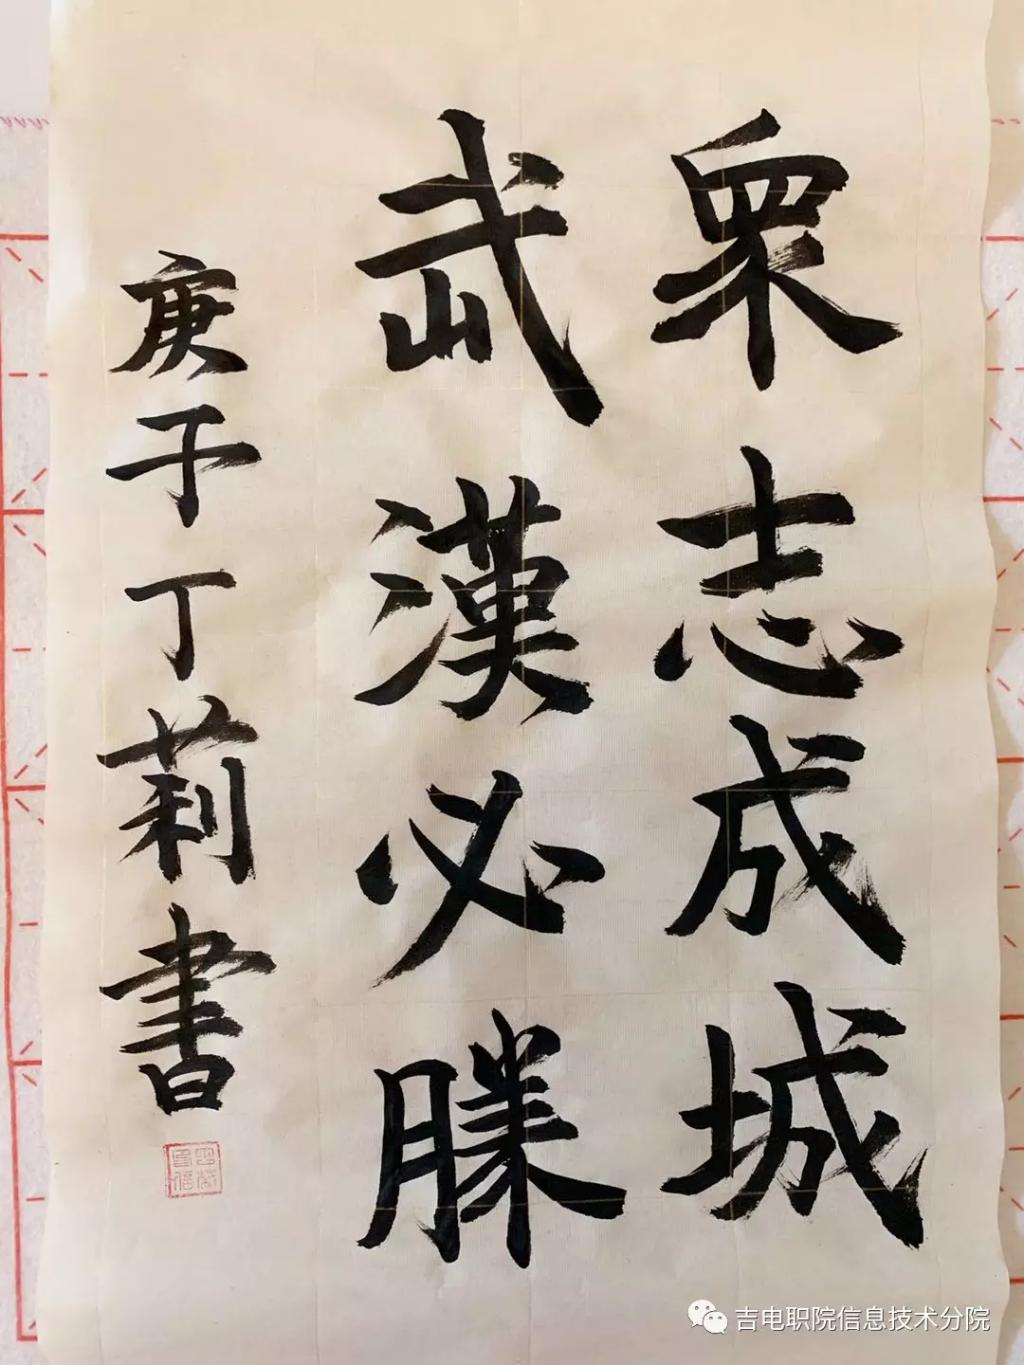 眾志成城
武漢必勝
庚子丁莉書
吉电职院信息技术分院